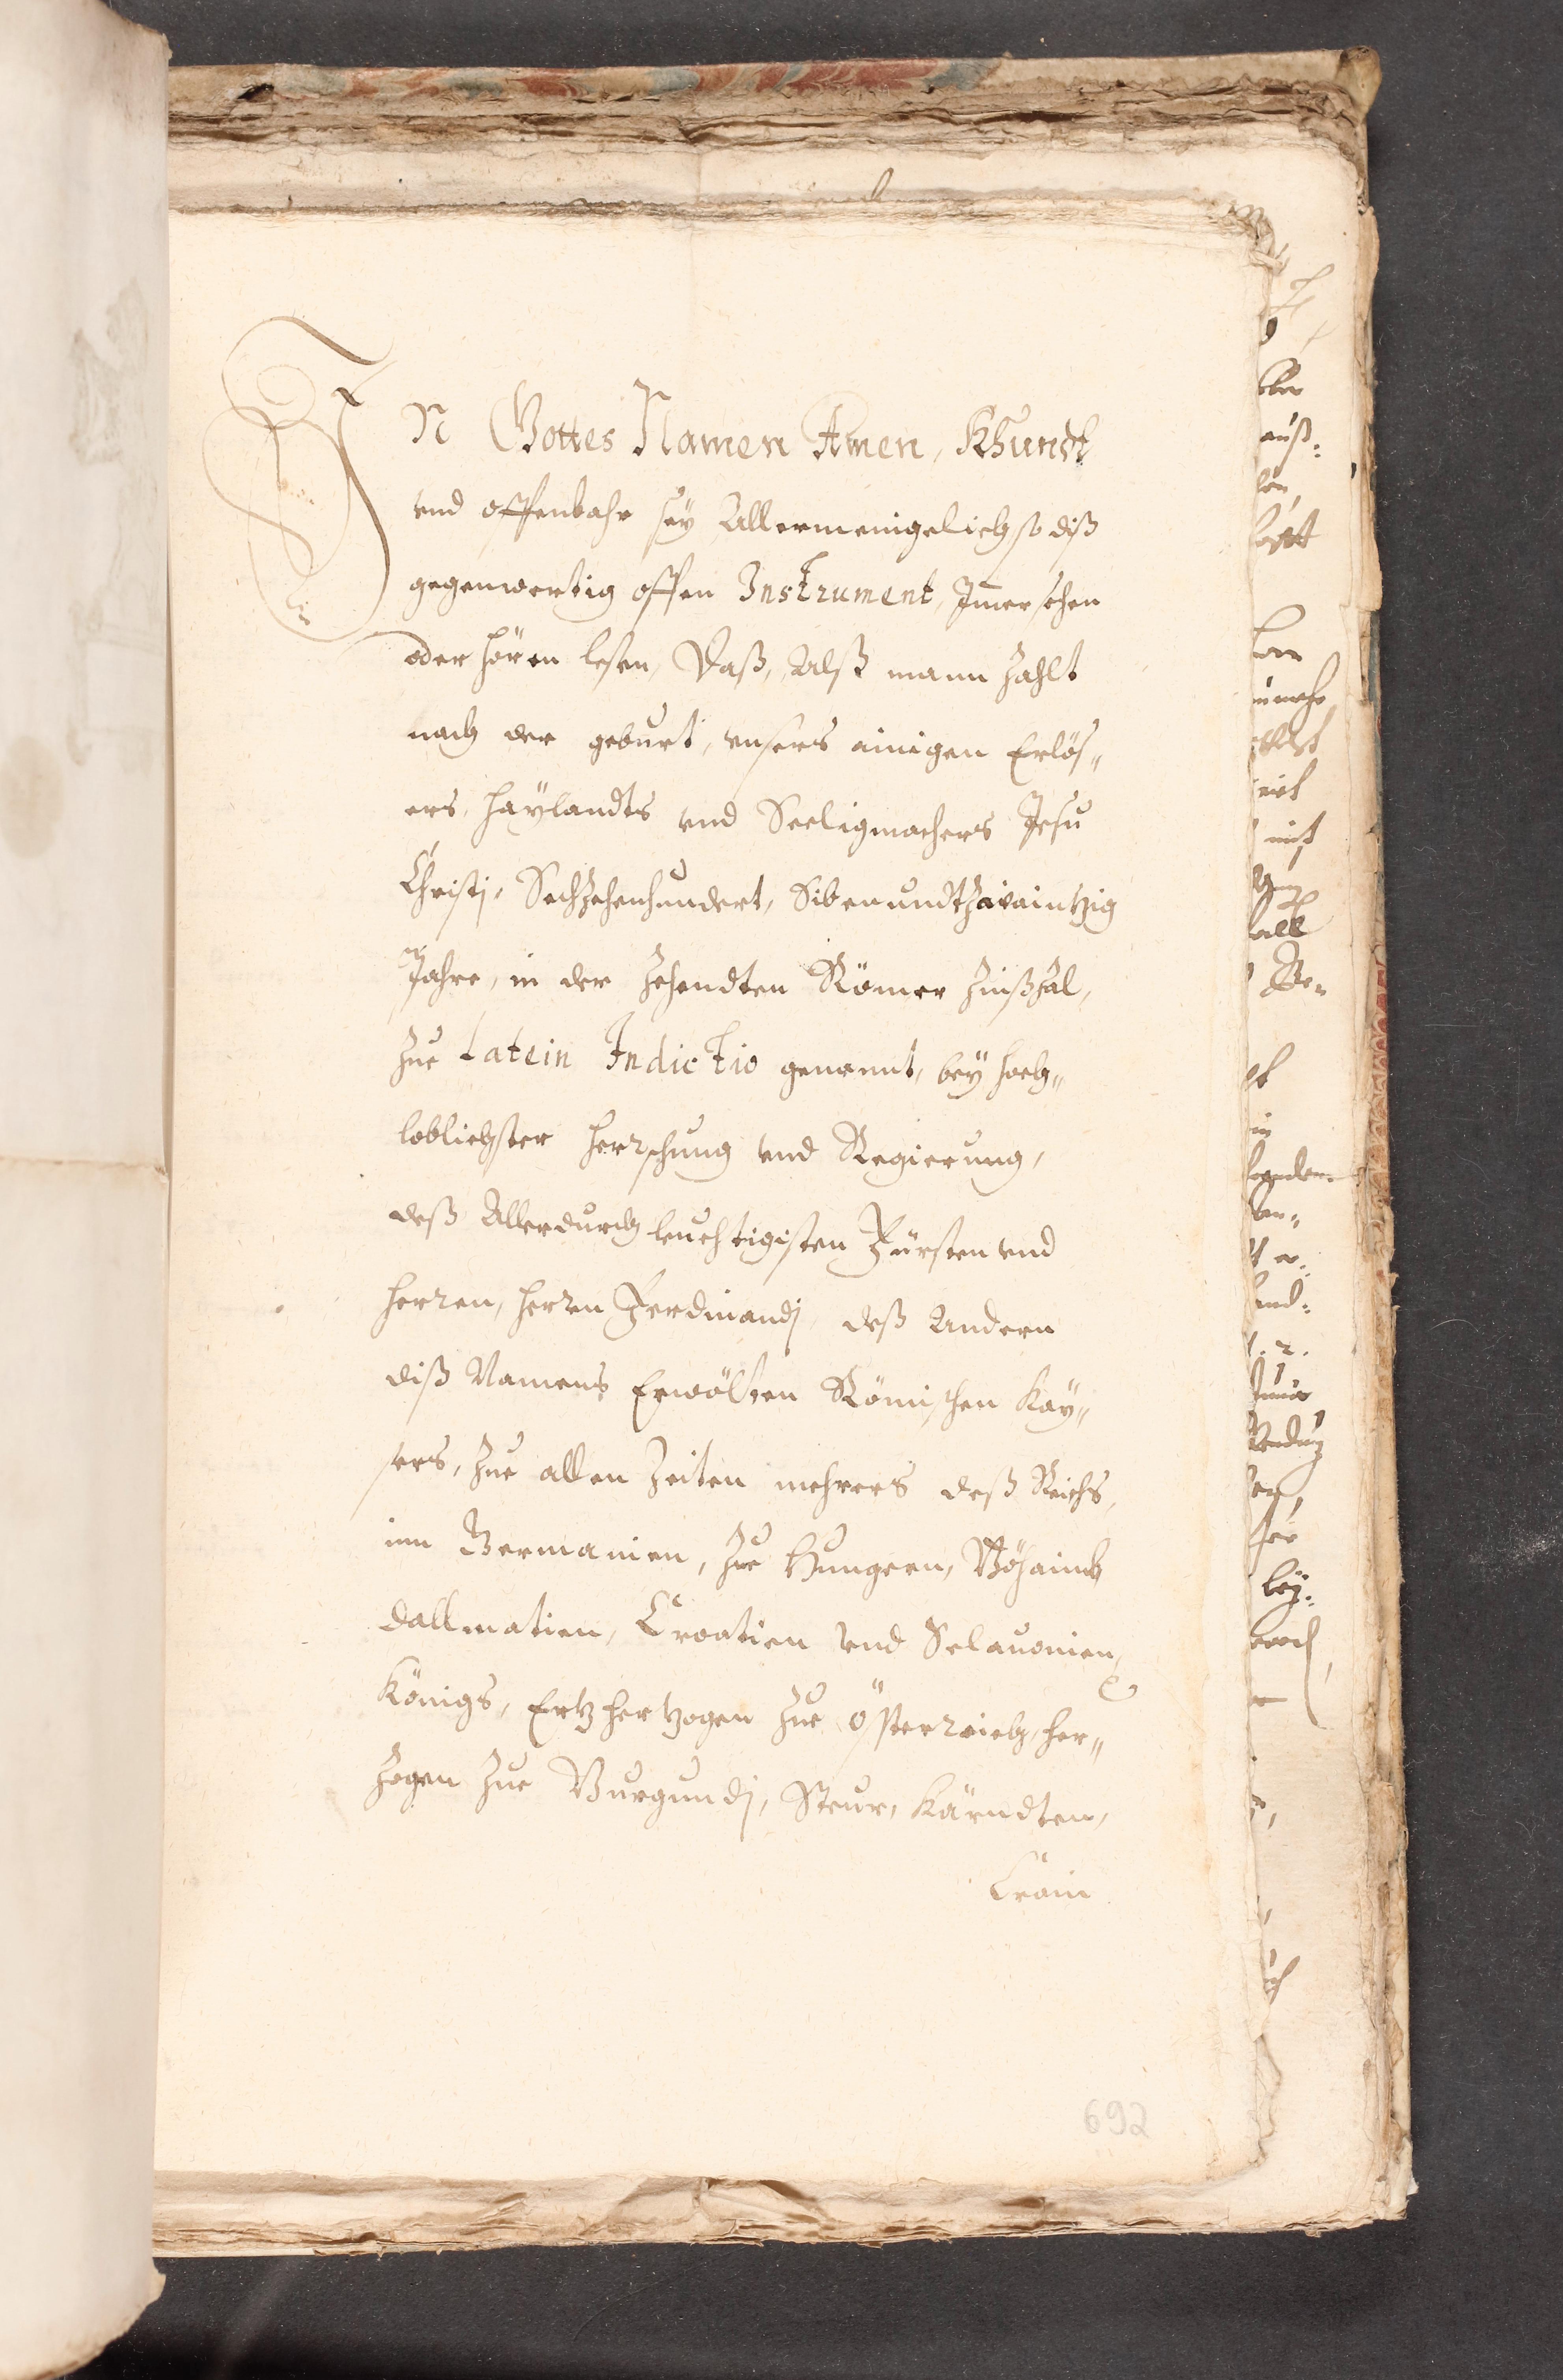 IN Gottes Namen Amen, Khundt
vnd offenbahr sey Allermenigelich, so diß
gegenwertig offen Instrument, Jmer sehen
oder hören lesen, Daß, Alß mann Zahlt
nach der geburt, vnsers einigen Erlös„
ers, Haylandts vnd Seeligmachers Jesu
Christj, Sechzehenhundert, Sibenundtzwaintzig
Jahre, in der Zehendten Römer Zinßzal,
Zue Latein Indictio genannt, bey hoch„
loblichster Herrschung vnd Regierung,
deß Allerdurchleuchtigisten Fürsten vnd
Herren, Herren Ferdinandj, deß Andern
diß Namens Erwölten Römischen Kay„
sers, Zue allen Zeiten mehrers deß Reichs,
inn Germanien, Zue Hungern, Böhaimb
Dallmatien, Croatien vnd Sclauonien,
Königs, Ertzhertzogen Zue Österreich, Her„
Zogen Zue Burgundj, Steur, Kärndten,
Crain
692
auß: